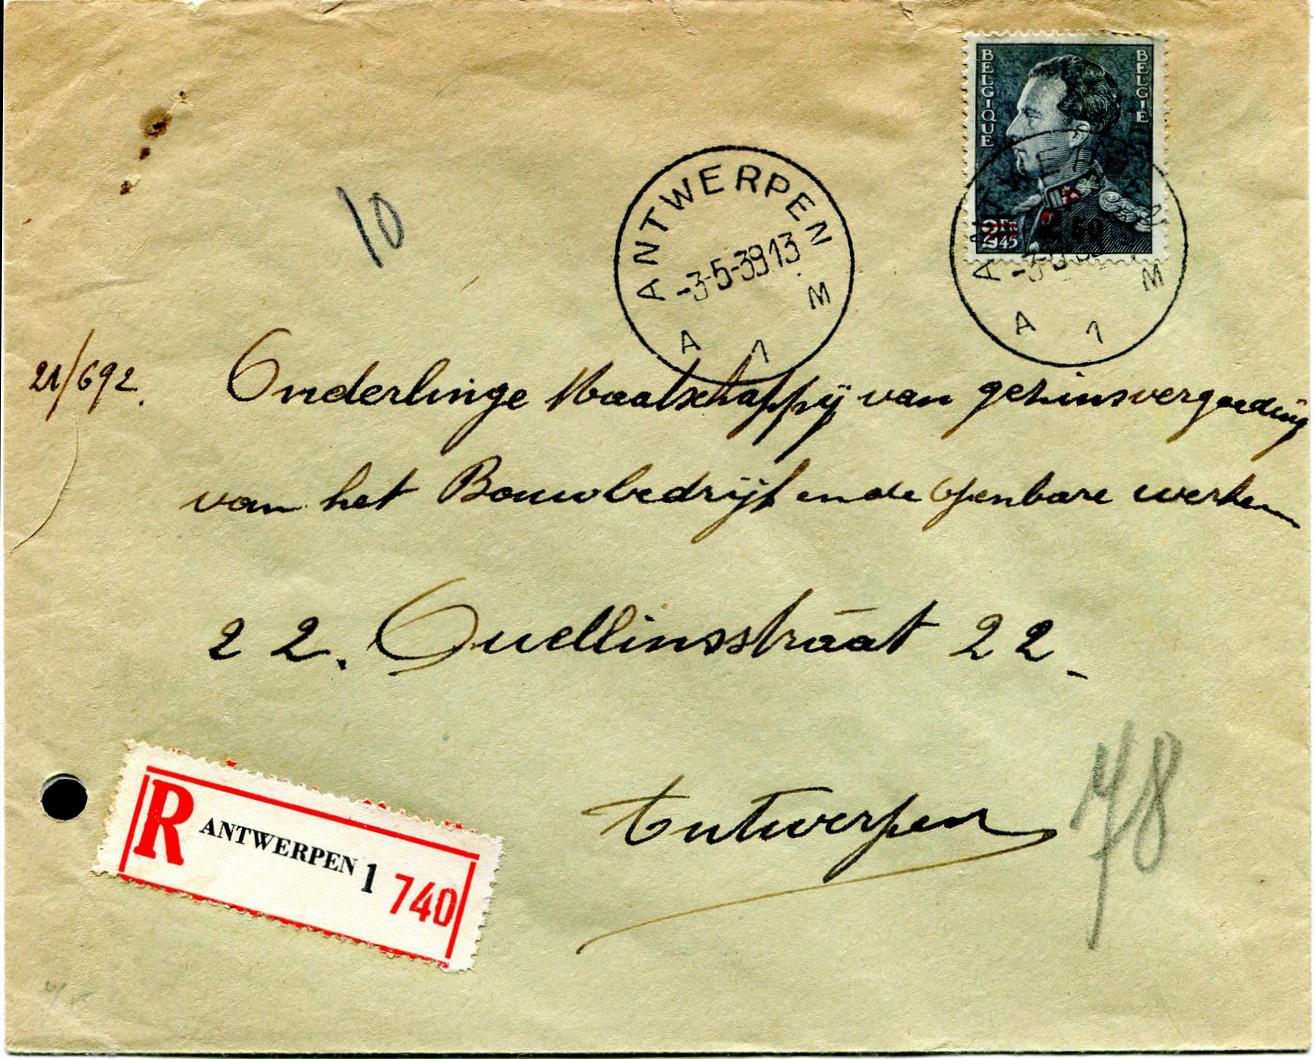 BELGIQUE
BELGIË
2 Fr 45
2 50
10
ANTWERPEN
-3-5-39 13
A 1 M
A 1 M
21/692.
Onderlinge Maatschappij van gezinsvergoeding
van het Bouwbedrijf en de Openbare werken
22. Quellinsstraat 22_
Antwerpen
78
R ANTWERPEN 1 740